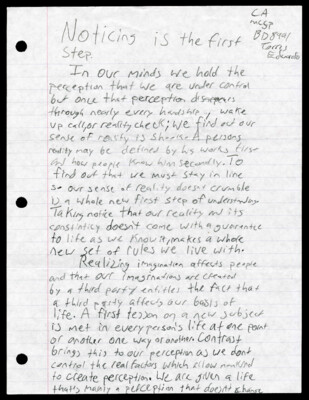 Noticing is the first
Step.
CA
MCSP
BD8901
Torres
Eduardo
In our minds we hold the
perception that we are under control
but once that perception disappears
through nearly every hardship, wake
up call, or reality check; we find out our
sense of reality is A persons
reality may be defined by his works first
and how people know him secondly. To
find out that we must stay in line
so our sense of reality doesn't crumble
is a whole new first step of understanding
Taking notice that our reality and its
consistincy doesn't come with a guarentee
to life as we know it, makes a whole
new set of rules we live with.
Realizing imagination affects people
and that our imaginations are created
by a third party entitles the fact that
a third party affects our basis of
life. A first lesson on a new subject
is met in every person's life at one point
or another one way or another. Contrast
brings this to our perception as we don't
control the real factors which allow mankind
to create perception. We are given a life
thats mainly a perception that doesn't change